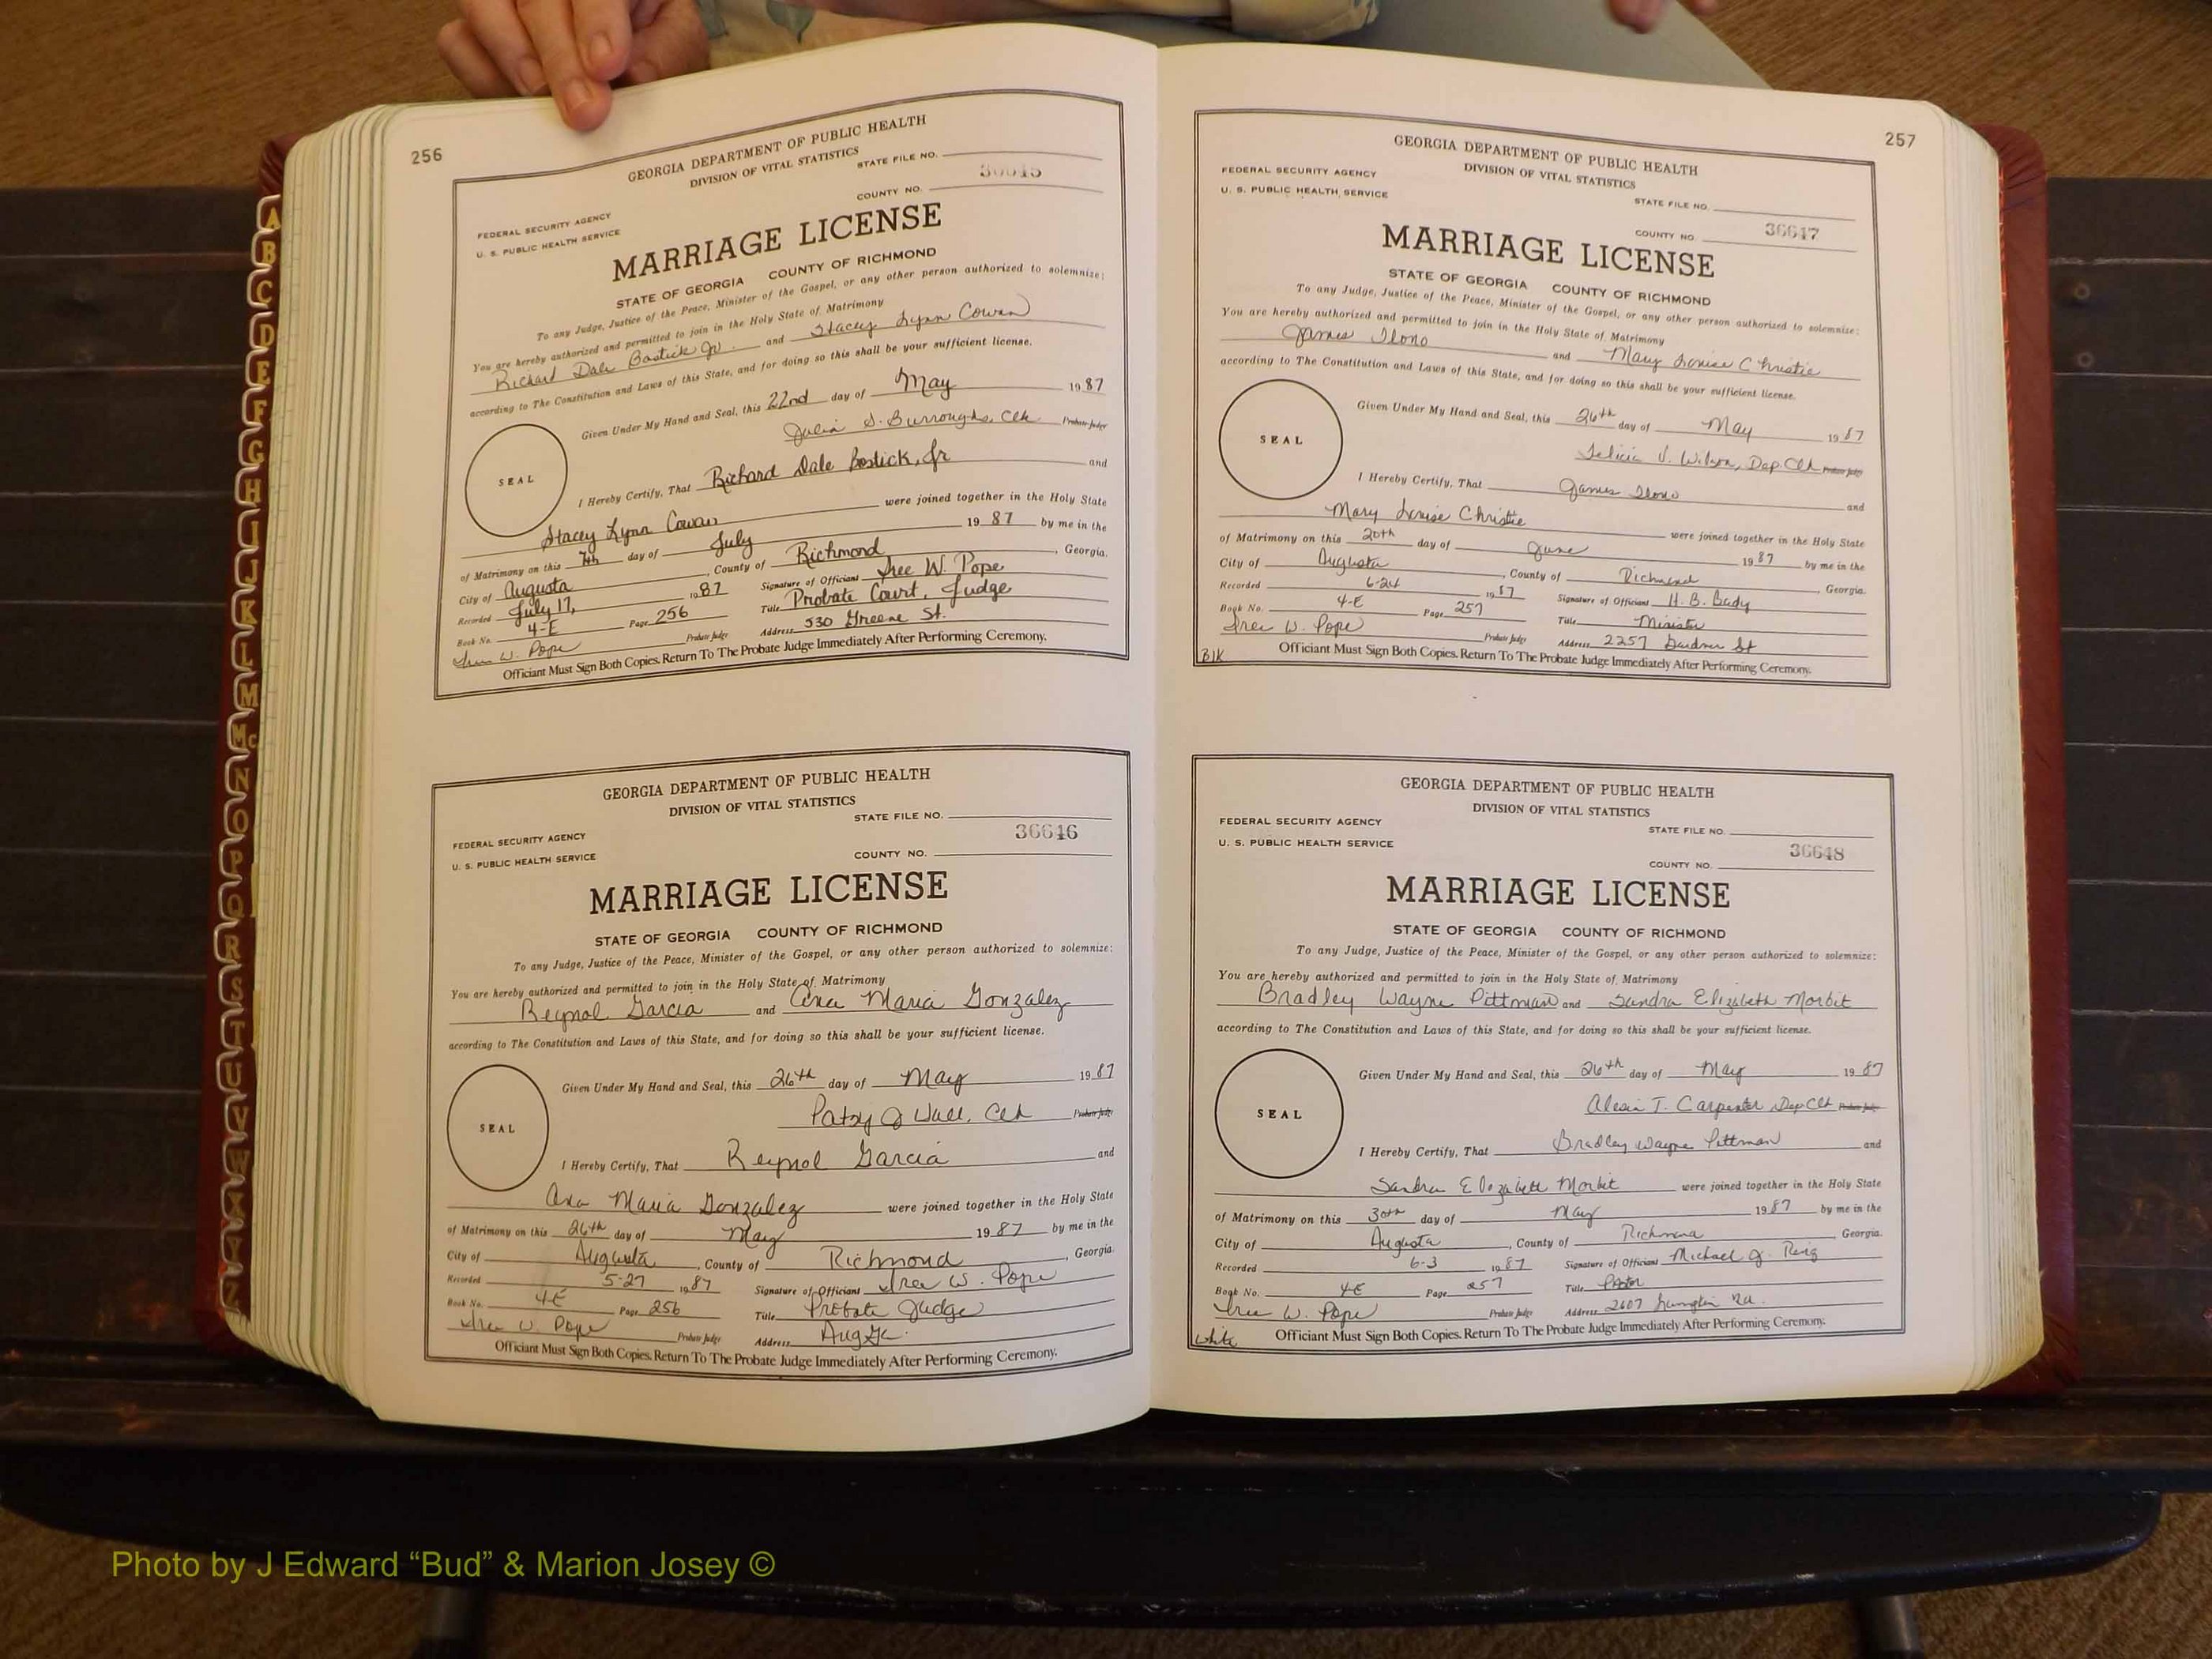 256
GEORGIA DEPARTMENT OF PUBLIC HEALTH
DIVISION OF VITAL STATISTICS
STATE FILE NO.
36645
COUNTY NO.
FEDERAL SECURITY AGENCY
U. S. PUBLIC HEALTH SERVICE
MARRIAGE LICENSE
STATE OF GEORGIA COUNTY OF RICHMOND
To any Judge, Justice of the Peace, Minister of the Gospel, or any other person authorized to solemnize:
You are hereby authorized and permitted to join in the Holy State of Matrimony
Richard Dale Bostick Jr. and Stacey Lynn Cowan
according to The Constitution and Laws of this State, and for doing so this shall be your sufficient license.
Given Under My Hand and Seal, this 22nd day of May 1987
Julia S. Burroughs, Clk Probate Judge
SEAL
I Hereby Certify, That Richard Dale Bostick, Jr and
Stacey Lynn Cowan were joined together in the Holy State
of Matrimony on this 7th day of July 1987 by me in the
City of Augusta, County of Richmond, Georgia.
Recorded July 17, 1987 Signature of Officiant W. Pope
Book No. 4-E Page 256 Title Probate Court, Judge
W. Pope Probate Judge Address 530 Greene St.
Officiant Must Sign Both Copies. Return To The Probate Judge Immediately After Performing Ceremony.
GEORGIA DEPARTMENT OF PUBLIC HEALTH
DIVISION OF VITAL STATISTICS
STATE FILE NO.
36646
FEDERAL SECURITY AGENCY
U. S. PUBLIC HEALTH SERVICE
COUNTY NO.
MARRIAGE LICENSE
STATE OF GEORGIA COUNTY OF RICHMOND
To any Judge, Justice of the Peace, Minister of the Gospel, or any other person authorized to solemnize:
You are hereby authorized and permitted to join in the Holy State of Matrimony
Reynol Garcia and Ana Maria Gonzalez
according to The Constitution and Laws of this State, and for doing so this shall be your sufficient license.
Given Under My Hand and Seal, this 26th day of May 1987
Patsy J Wall, Clk Probate Judge
SEAL
I Hereby Certify, That Reynol Garcia and
Ana Maria Gonzalez were joined together in the Holy State
of Matrimony on this 26th day of May 1987 by me in the
City of Augusta, County of Richmond, Georgia
Recorded 5-27 1987 Signature of Officiant W. Pope
Book No. 4E Page 256 Title Probate Judge
W. Pope Probate Judge Address Aug Ga.
Officiant Must Sign Both Copies. Return To The Probate Judge Immediately After Performing Ceremony.
257
GEORGIA DEPARTMENT OF PUBLIC HEALTH
DIVISION OF VITAL STATISTICS
FEDERAL SECURITY AGENCY
U. S. PUBLIC HEALTH SERVICE
STATE FILE NO.
36647
COUNTY NO.
MARRIAGE LICENSE
STATE OF GEORGIA COUNTY OF RICHMOND
To any Judge, Justice of the Peace, Minister of the Gospel, or any other person authorized to solemnize:
You are hereby authorized and permitted to join in the Holy State of Matrimony
James Ilono and Mary Louise Christie
according to The Constitution and Laws of this State, and for doing so this shall be your sufficient license.
Given Under My Hand and Seal, this 26th day of May 1987
Felicia V. Wilson, Dep. Clk Probate Judge
SEAL
I Hereby Certify, That James Ilono and
Mary Louise Christie were joined together in the Holy State
of Matrimony on this 20th day of June 1987 by me in the
City of Augusta, County of Richmond, Georgia.
Recorded 6-24 1987 Signature of Officiant H. B. Bady
Book No. 4-E Page 257 Title Minister
W. Pope Probate Judge Address 2257 Gardner St
Blk Officiant Must Sign Both Copies. Return To The Probate Judge Immediately After Performing Ceremony.
GEORGIA DEPARTMENT OF PUBLIC HEALTH
DIVISION OF VITAL STATISTICS
FEDERAL SECURITY AGENCY
U. S. PUBLIC HEALTH SERVICE
STATE FILE NO.
36648
COUNTY NO.
MARRIAGE LICENSE
STATE OF GEORGIA COUNTY OF RICHMOND
To any Judge, Justice of the Peace, Minister of the Gospel, or any other person authorized to solemnize:
You are hereby authorized and permitted to join in the Holy State of Matrimony
Bradley Wayne Pittman and Sandra Elizabeth Morbit
according to The Constitution and Laws of this State, and for doing so this shall be your sufficient license.
Given Under My Hand and Seal, this 26th day of May 1987
T. Carpenter Dep Clk Probate Judge
SEAL
I Hereby Certify, That Bradley Wayne Pittman and
Sandra Elizabeth Morbit were joined together in the Holy State
of Matrimony on this 30th day of May 1987 by me in the
City of Augusta, County of Richmond, Georgia.
Recorded 6-3 1987 Signature of Officiant Michael J.
Book No. 4E Page 257 Title Pastor
W. Pope Probate Judge Address 2607 Rd.
White Officiant Must Sign Both Copies. Return To The Probate Judge Immediately After Performing Ceremony.
A
B
C
D
E
F
G
H
I
J
K
L
M
Mc
N
O
P
Q
R
S
T
U
V
W
X
Y
Z
Photo by J Edward “Bud” & Marion Josey ©